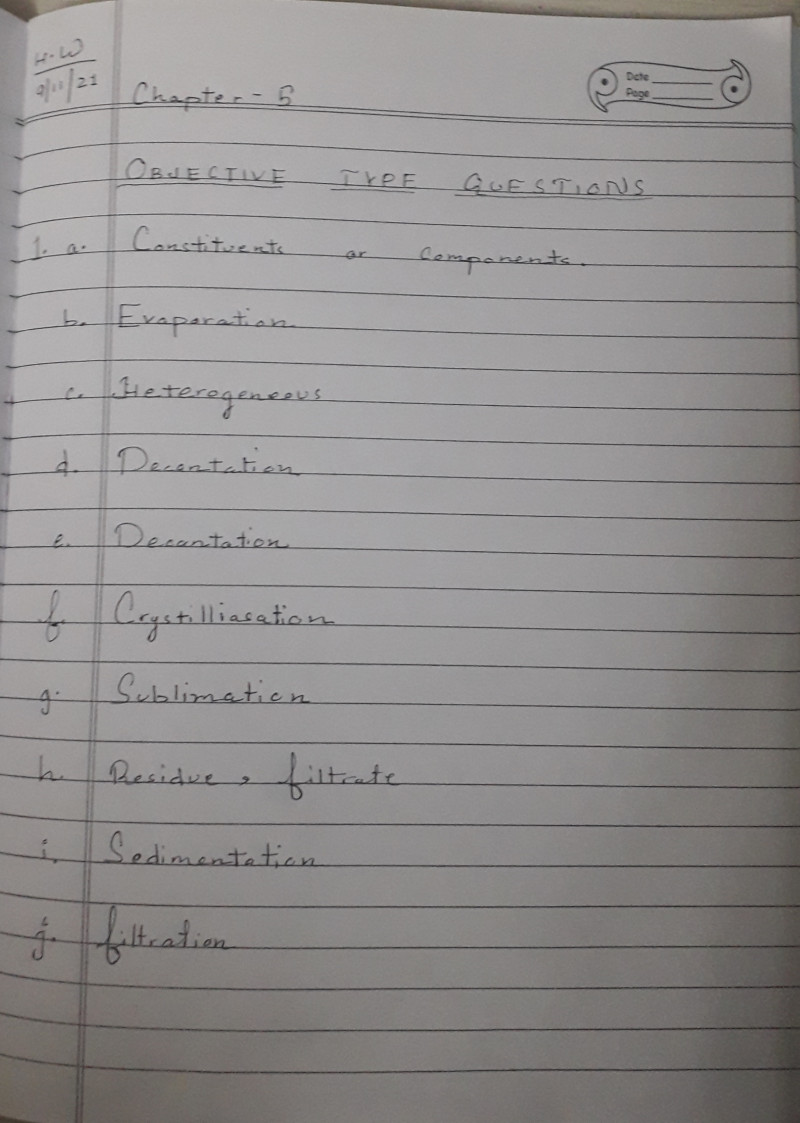 H.W
9/11/21
Chapter - 5
Date
Page
OBJECTIVE TYPE QUESTIONS
1. a. Constituents or components.
b. Evaporation
c. Heterogeneous
d. Decantation
e. Decantation
f. Crystilliasation
g. Sublimation
h. Residue, filtrate
i. Sedimentation
j. filtration